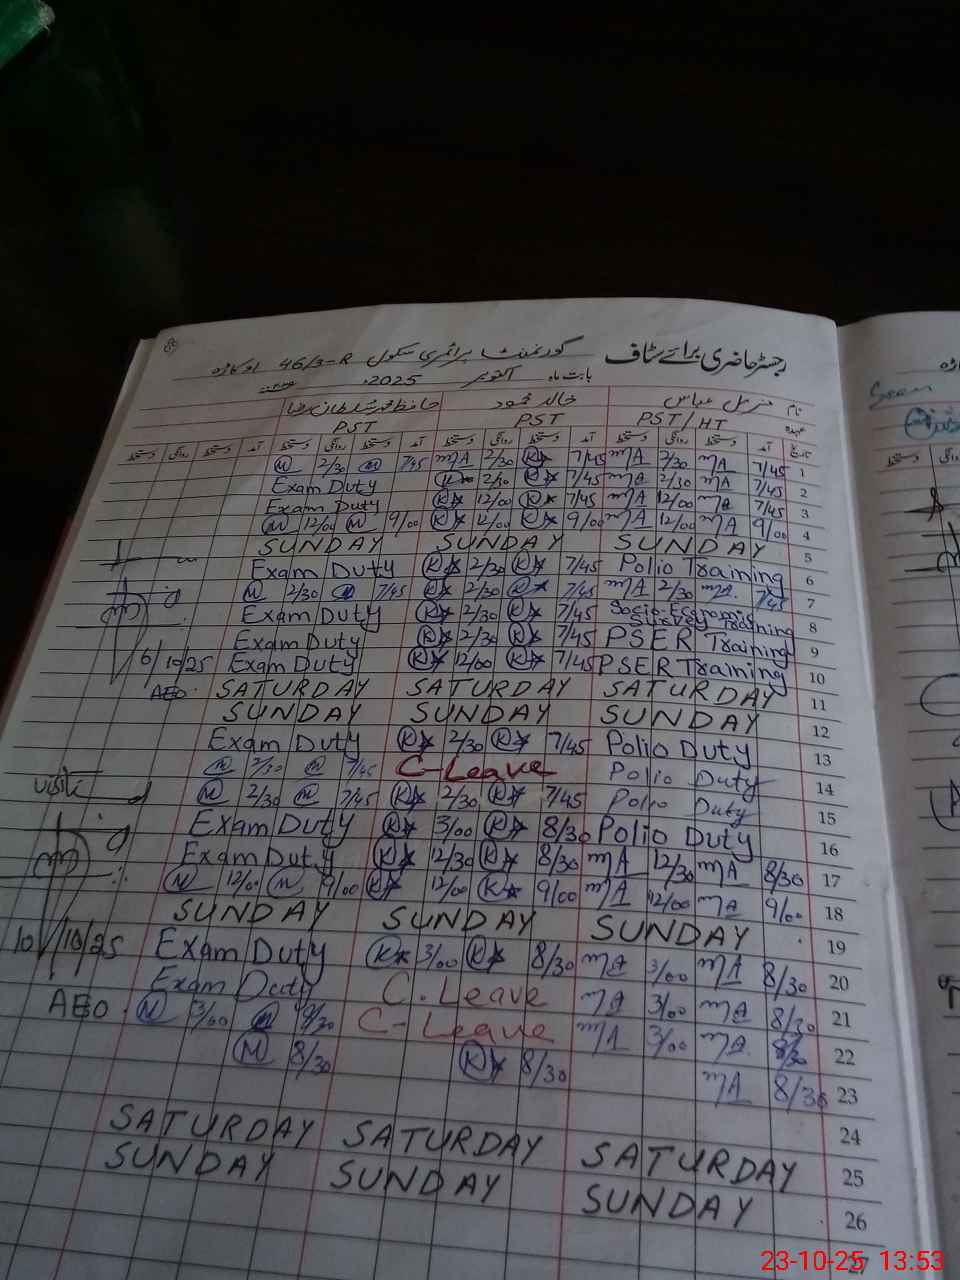 رجسٹر حاضری برائے سٹاف گورنمنٹ پرائمری سکول 46/3-R اوکاڑہ
بابت ماہ اکتوبر 2025
نام مزمل عباس خالد محمود
عہدہ PST/HT PST PST
تاریخ آمد دستخط روانگی دستخط آمد دستخط روانگی دستخط آمد دستخط روانگی دستخط آمد دستخط روانگی دستخط
1 7/45 mA 2/30 mA 7/45 K 2/30 mA 7/45 M 2/30 M
2 7/45 mA 2/30 mA 7/45 K 2/30 K Exam Duty
3 7/45 mA 12/00 mA 7/45 K 12/00 K Exam Duty
4 9/00 mA 12/00 mA 9/00 K 12/00 K 9/00 M 12/00 M
5 SUNDAY SUNDAY SUNDAY
6 Polio Training 7/45 K 2/30 K Exam Duty
7 7/45 mA 2/30 mA 7/45 K 2/30 K 7/45 M 2/30 M
8 Socio-Economic Survey Training 7/45 K 2/30 K Exam Duty
9 PSER Training 7/45 K 2/30 K Exam Duty
10 PSER Training 7/45 K 12/00 K Exam Duty
6/10/25
AEO
11 SATURDAY SATURDAY SATURDAY
12 SUNDAY SUNDAY SUNDAY
13 Polio Duty 7/45 K 2/30 K Exam Duty
14 Polio Duty C-Leave 7/45 M 2/30 M
15 Polio Duty 7/45 K 2/30 K 7/45 M 2/30 M
Visit
16 Polio Duty 8/30 K 3/00 K Exam Duty
17 8/30 mA 12/30 mA 8/30 K 12/30 K Exam Duty
18 9/00 mA 12/00 mA 9/00 K 12/00 K 9/00 M 12/00 M
19 SUNDAY SUNDAY SUNDAY
20 8/30 mA 3/00 mA 8/30 K 3/00 K Exam Duty
10/10/25
21 8/30 mA 3/00 mA C. Leave Exam Duty
AEO
22 8/30 mA 3/00 mA C-Leave M 3/00 M
23 8/30 mA 8/30 K 8/30 M
24
25 SATURDAY SATURDAY SATURDAY
26 SUNDAY SUNDAY SUNDAY
27
23-10-25 13:53